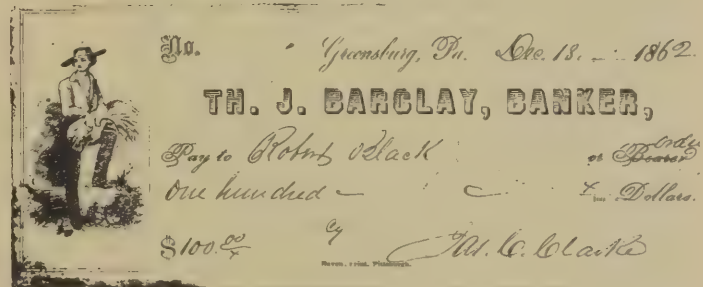 No. Greensburg, Pa. Dec. 13. 1862.
TH. J. BARCLAY, BANKER,
Pay to Robert Black or Bearer order
One hundred Dollars.
$100.00/x
Jas. C. Clarke